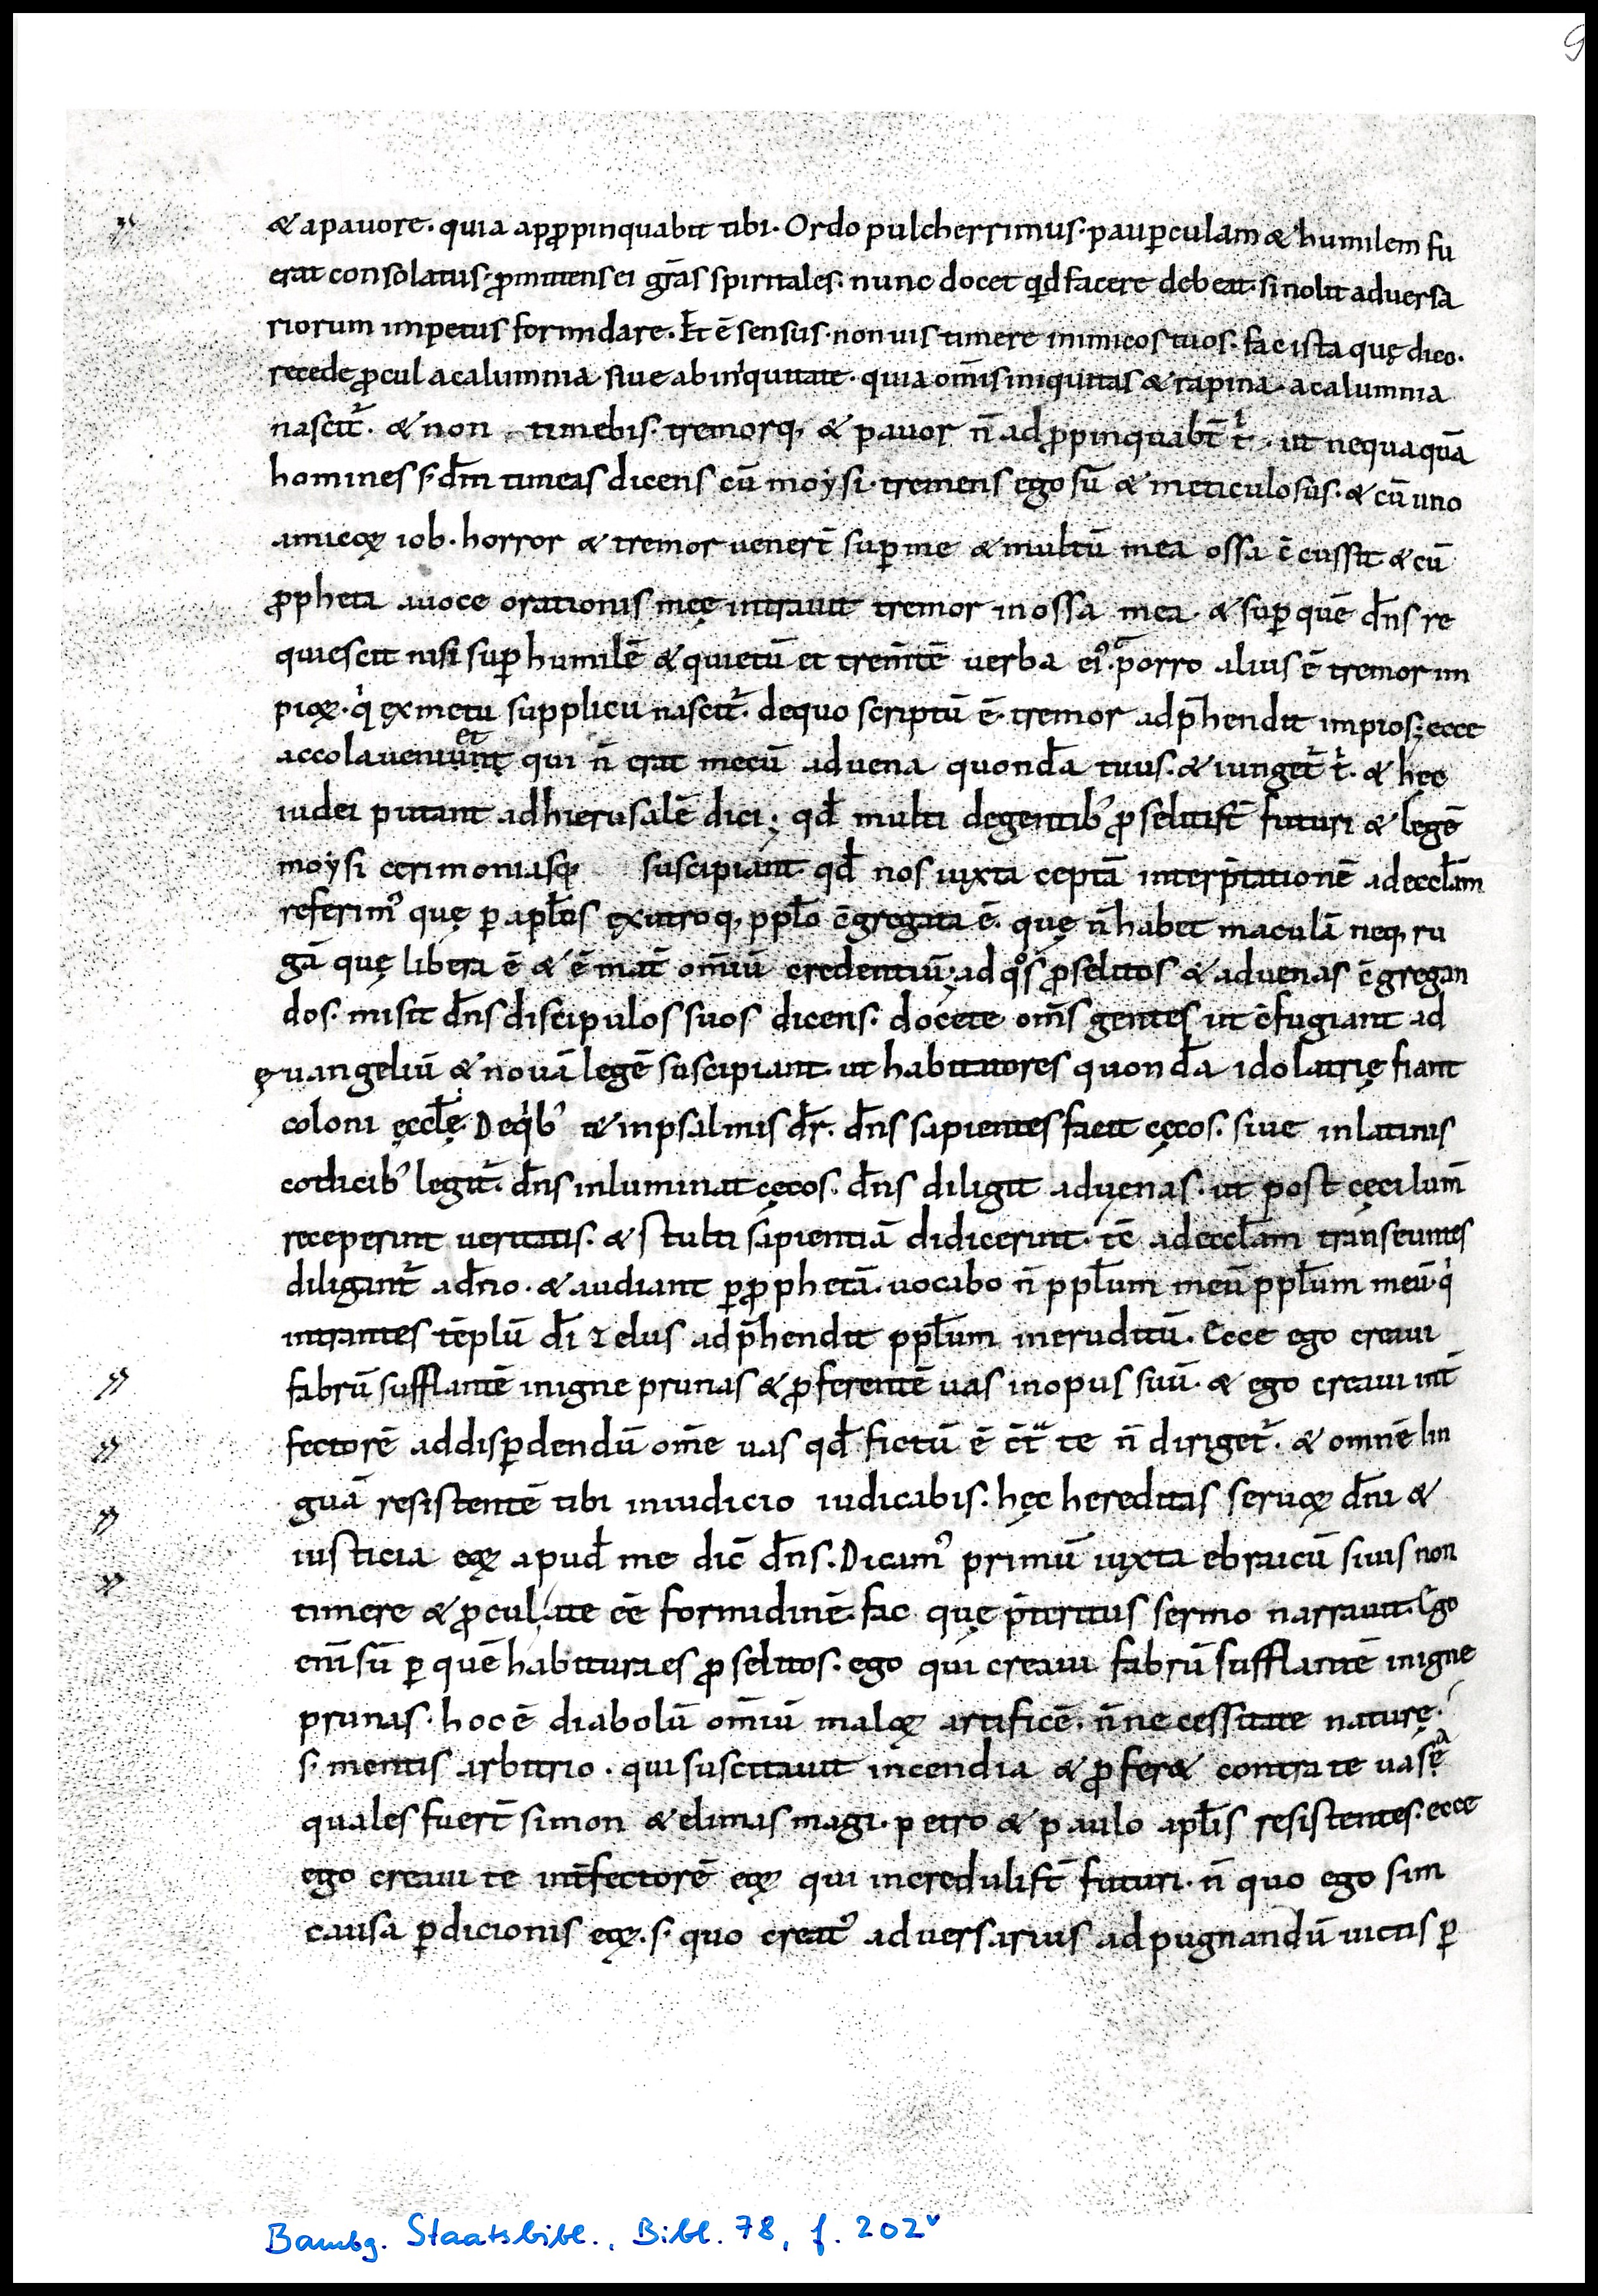 9
& apauore. quia appropinquabit tibi. Ordo pulcherrimus. paup̱culam & humilem fu
erat consolatus. ꝓmittens ei gr̄as spiritales. nunc docet qd facere debeat. si nolit aduersa
riorum impetus formidare. Et ē sensus. non uis timere inimicos tuos. fac ista quę dico.
recede ꝓcul a calumnia siue ab iniquitate. quia om̄is iniquitas & rapina. a calumnia
nascit᷑. & non timebis. tremorq; & pauor n̄ adꝓpinquabt̄ t̉. ut nequaquā
homines s; d̄m timeas dicens cū moẏsi. tremens ego sū & meticulosus. & cū uno
amicoꝝ iob. horror & tremor uener̄t suꝑ me & multū mea ossa c̄cussit. & cū
ꝓpheta auoce orationis meę intrauit tremor in ossa mea. & suꝑ quē d̄ns re
quiescit nisi suꝑ humilē & quietū et trem̄tē uerba ei᷒. porro alius ē tremor im
pioꝝ. q̉ ex metu supplicii nascit᷑. dequo scriptū ē. tremor adp̄hendit impios; ecce
accola ueniunt et qui n̄ erat mecū aduena quondā tuus. & iunget᷑ t̉. & hęc
iudei putant adhierusalē dici; qd̄ multi degentib᷒ ꝓselitis̄t futuri & legē
moẏsi cerimoniasq; suscipiant qd̄ nos iuxta ceptā interp̄tationē adeccl̄am
referim᷒ quę ꝑ apl̄os exutroq; ppl̄o c̄gregata ē. quę n̄ habet maculā neq; ru
gā quę libera ē & ē mat̄ om̄iū credentiū; ad qͦs ꝓselitos & aduenas c̄gregan
dos. misit d̄ns discipulos suos dicens. docete om̄s gentes ut c̄fugiant ad
ęuangeliū & nouā legē suscipiant. ut habitatores quondā idolatrię fiant
coloni ęccl̄ę. Deq̉b᷒ & inpsalmis dr̄. d̄ns sapientes facit cęcos. siue inlatinis
codicib᷒ legit᷑. d̄ns inluminat cęcos. d̄ns diligit aduenas. ut post cęci lum̄
receperint ueritatis. & stulti sapientiā didicerint. tc̄ adeccl̄am transeuntes
diligant᷑ ad̄no. & audiant ꝑ ꝓphetā. uocabo n̄ ppl̄um meū ppl̄um meū. q̉
intrantes tēplū d̄i zelus adp̄hendit ppl̄um ineruditū. Ecce ego creaui
fabrū sufflantē inigne prunas & ꝓferentē uas inopus suū. & ego creaui int̄
fectorē addisꝑdendū om̄e uas qd̄ fictū ē c̄tͣ te n̄ diriget᷑. & omnē lin
guā resistentē tibi iniudicio iudicabis. hęc hereditas seruoꝝ d̄ni &
iusticia eoꝝ apud̄ me dic̄ d̄ns. Dicam᷒ primū iuxta ebraicū siuis non
timere & ꝓcul ate ēē formidinē. fac quę p̄teritus sermo narrauit. Ego
eni̅ sū ꝑ quē habitura es ꝓselitos. ego qui creaui fabrū sufflantē inigne
prunas. hoc ē diabolū om̄iū maloꝝ artificē. n̄ necessitate naturę.
s; mentis arbitrio. qui suscitauit incendia & ꝓfer& contra te uasͣę
quales fuer̄t simon & elimas magi. petro & paulo apl̄is resistentes. ecce
ego creaui te int̄fectorē eoꝝ qui increduli s̄t futuri. n̄ quo ego sim
causa ꝑdicionis eoꝝ. s; quo creat᷒ aduersarius adpugnandū uictis ꝑ
Bambg. Staatsbibl., Bibl. 78, f. 202ᵛ